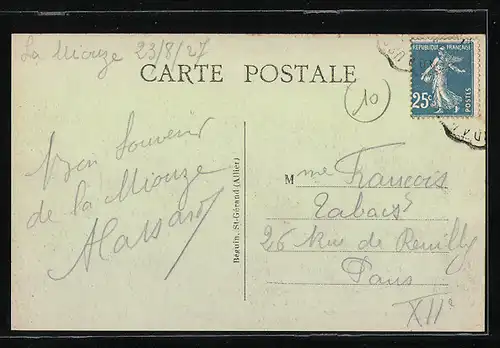 La Miouze 23/8/27
CARTE POSTALE
REPUBLIQUE FRANÇAISE
25c
POSTES
10
Bon Souvenir
de la Miouze
Beguin, St-Gérand (Allier)
Mme François
26 Rue de Reuilly
Paris
XIIe